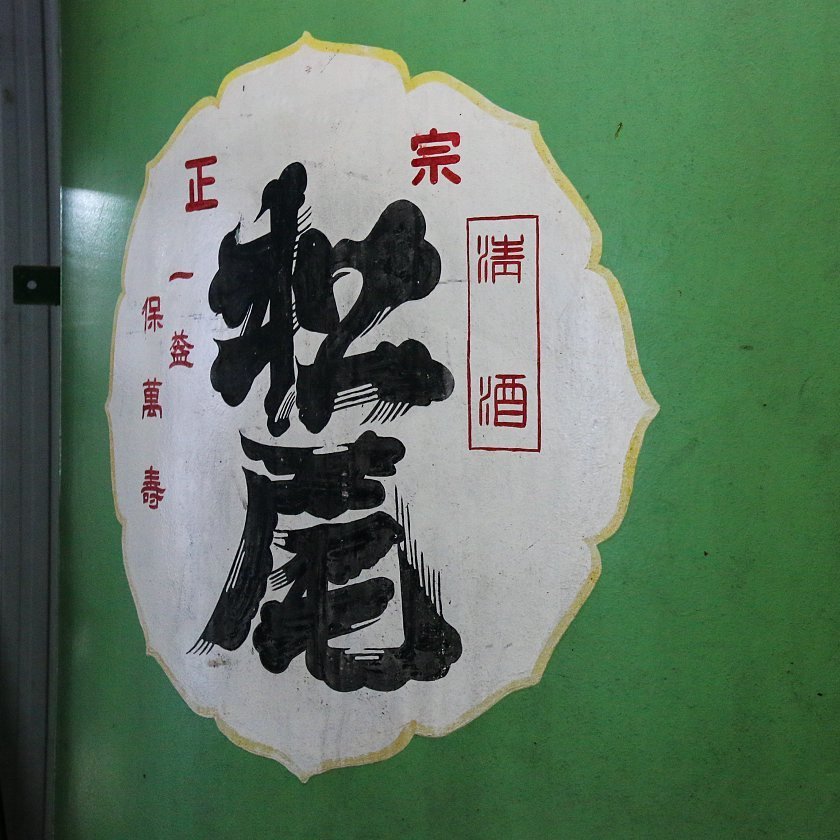 正宗
清酒
松尾
一益
保萬壽